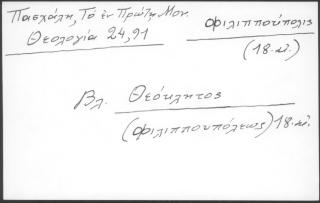 Πασχάλη, Τό ἐν Πρώτῃ Μον.
Θεολογία 24,91
Φιλιππούπολις
(18. αἰ.)
Βλ. Θεόκλητος
(Φιλιππουπόλεως) 18. αἰ.